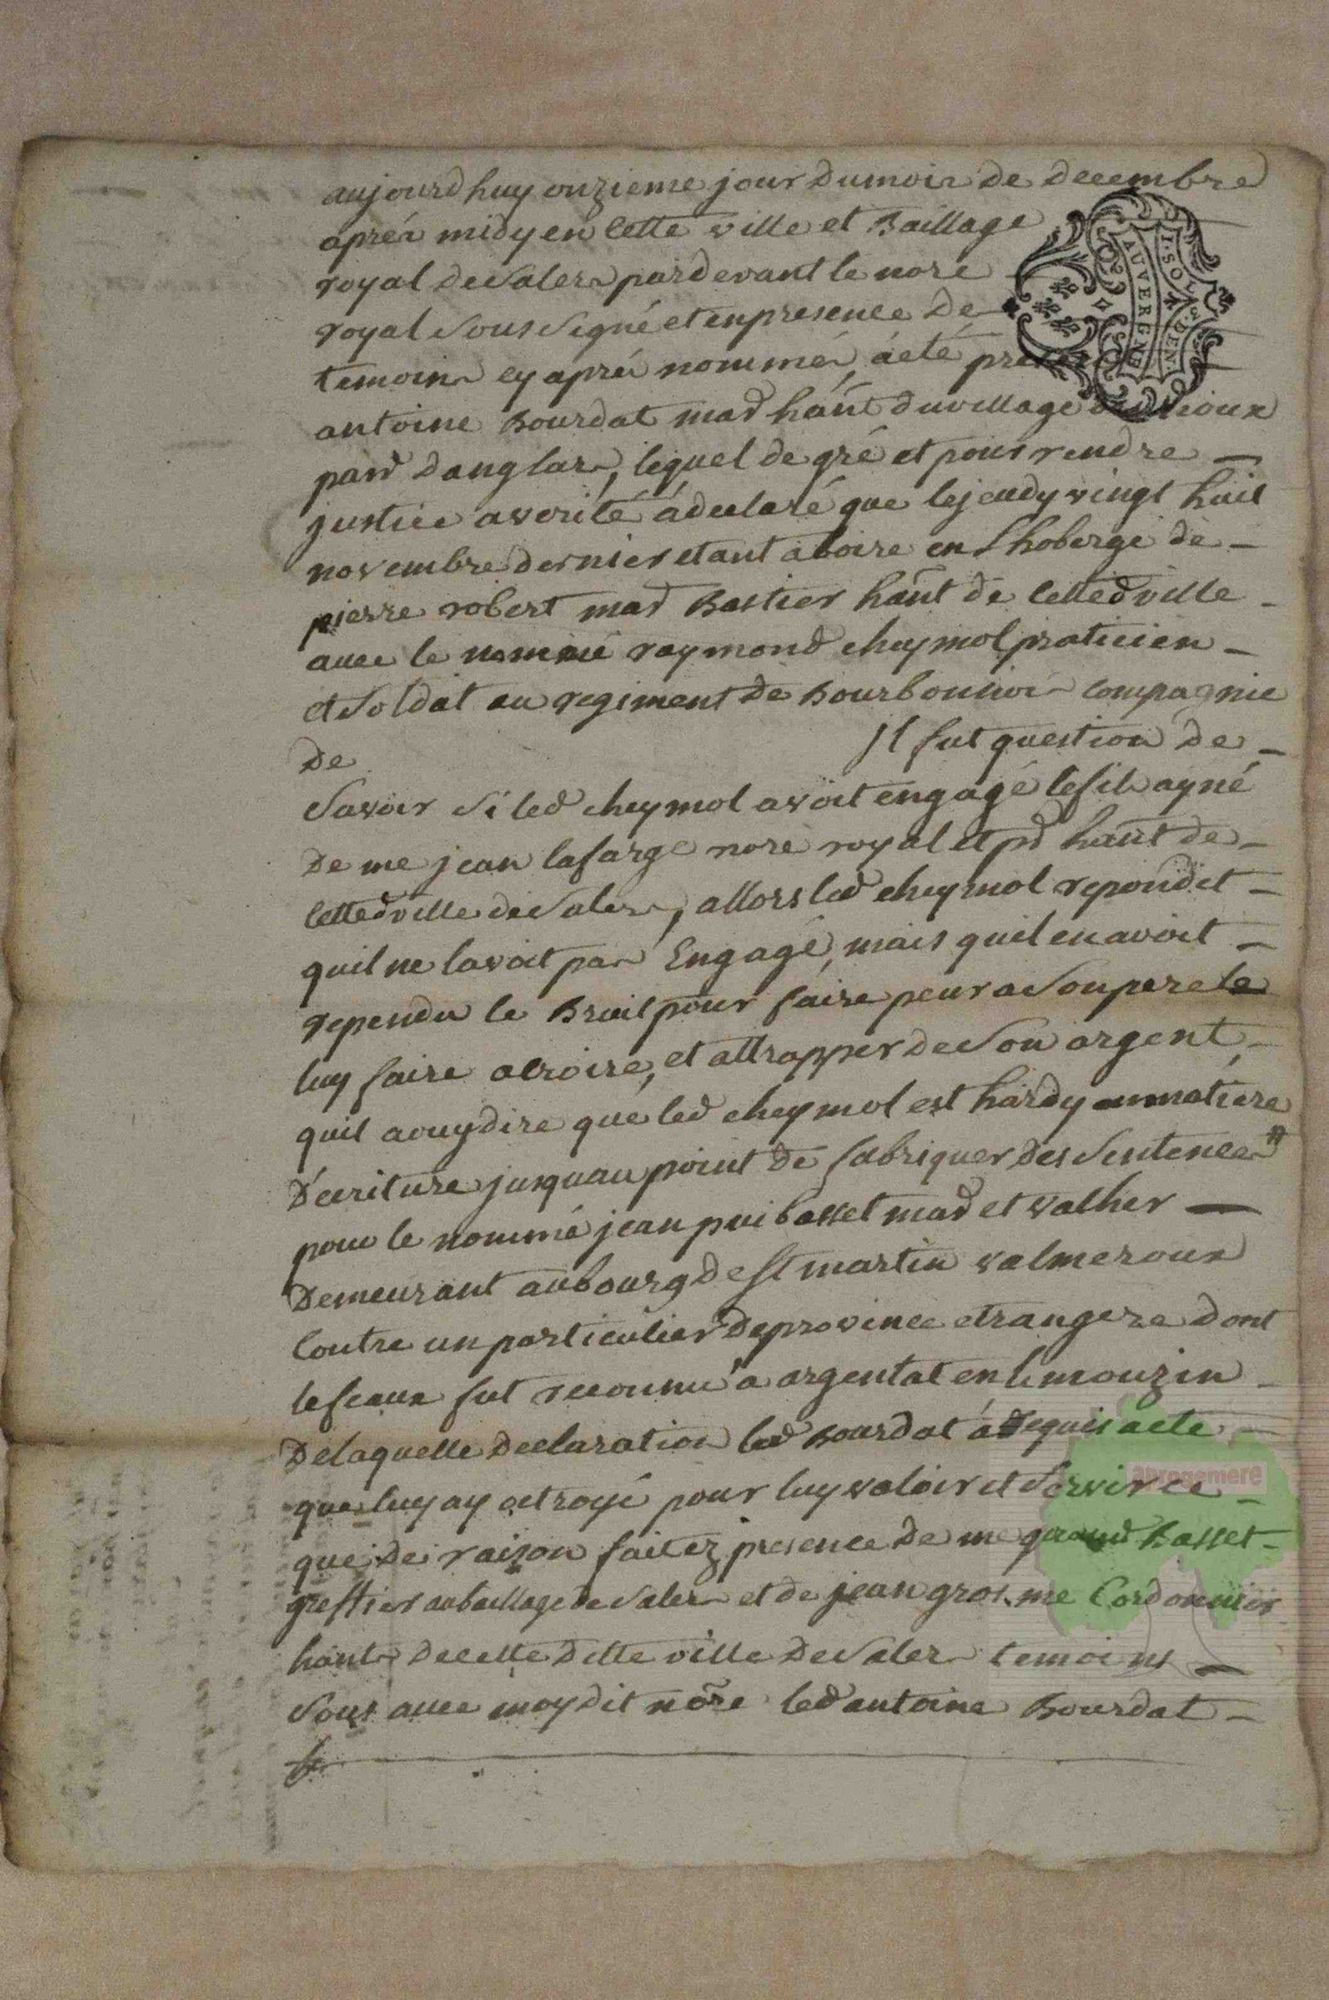 aujourdhuy onzieme jour du mois de decembre
aprés midy en cette ville et Baillage
royal de Salers pardevant le nore
royal Sous Signé et en presence de
temoins cy aprés nommés, a été
antoine Bourdat mard hant du village
parr danglars, lequel de gré et pour rendre
justice a verité a declaré que le jeudy vingt huit
novembre dernier etant a boire en Lhoberge de
pierre robert mard Bastier hant de cetted ville
avec le nommé raymond cheymol praticien
et Soldat au regiment de Bourbonnois compagnie
De Il fut question de
Savoir Si led cheymol avoit engagé le fils ayné
De me jean lafarge nore royal et pr hant de
cetted ville de Salers, allors led cheymol repondit
quil ne lavoit pas Engagé, mais quil en avoit
rependu le Bruit pour faire peur a Son pere le
luy faire acroire, et attrapper de Son argent,
quil a ouy dire que led cheymol est hardy en matiere
Décriture jusquau point de fabriquer des Sentences
pour le nommé jean puibasset mard et valher
Demeurant au bourg de St martin valmeroux
Contre un particulier de province etrangere dont
le feaux fut reconnu a argentat en limouzin
De laquelle declaration led Bourdat a requis acte
que luy ay octroyé pour luy valoir et Servir ce
que de raizon fait ez presence de me Basset
greffier au baillage de Salers et de jean gros me Cordonnier
hants de cette ditte ville de Salers temoins
Sous avec moydit nore led antoine Bourdat
I. SOL. 3. DEN.
AUVERGNE
aprogemere